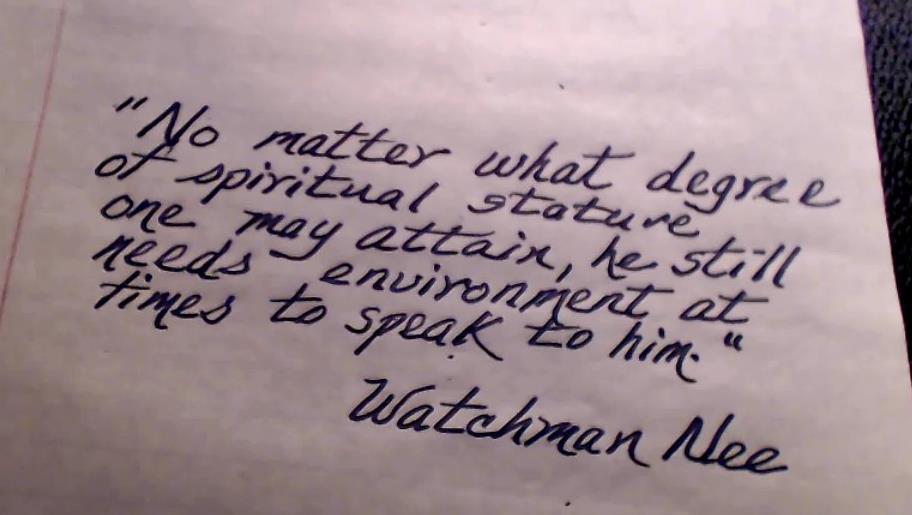 "No matter what degree
of spiritual stature
one may attain, he still
needs environment at
times to speak to him."
Watchman Nee